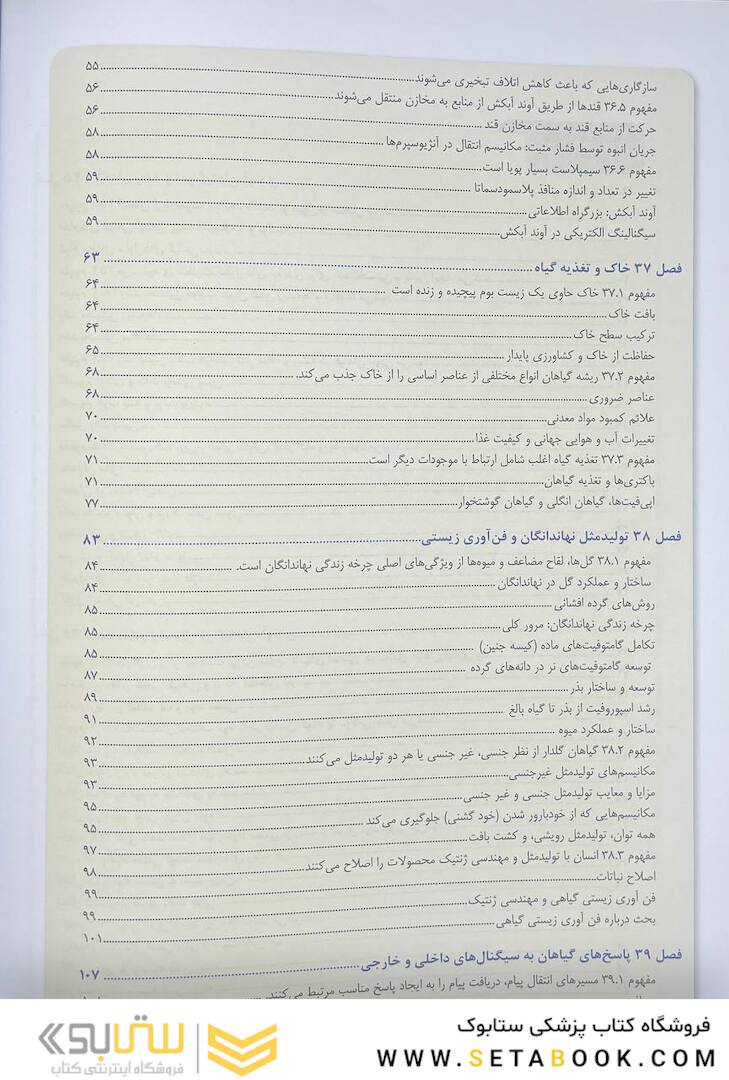 سازگاری‌هایی که باعث کاهش اتلاف تبخیری می‌شوند ۵۵
مفهوم ۳۶.۵ قندها از طریق آوند آبکش از منابع به مخازن منتقل می‌شوند ۵۶
حرکت از منابع قند به سمت مخازن قند ۵۶
جریان انبوه توسط فشار مثبت: مکانیسم انتقال در آنژیوسپرم‌ها ۵۸
مفهوم ۳۶.۶ سیمپلاست بسیار پویا است ۵۸
تغییر در تعداد و اندازه منافذ پلاسمودسماتا ۵۹
آوند آبکش: بزرگراه اطلاعاتی ۵۹
سیگنالینگ الکتریکی در آوند آبکش ۵۹
فصل ۳۷ خاک و تغذیه گیاه ۶۳
مفهوم ۳۷.۱ خاک حاوی یک زیست بوم پیچیده و زنده است ۶۴
بافت خاک ۶۴
ترکیب سطح خاک ۶۴
حفاظت از خاک و کشاورزی پایدار ۶۵
مفهوم ۳۷.۲ ریشه گیاهان انواع مختلفی از عناصر اساسی را از خاک جذب می‌کند. ۶۸
عناصر ضروری ۶۸
علائم کمبود مواد معدنی ۷۰
تغییرات آب و هوایی جهانی و کیفیت غذا ۷۰
مفهوم ۳۷.۳ تغذیه گیاه اغلب شامل ارتباط با موجودات دیگر است ۷۱
باکتری‌ها و تغذیه گیاهان ۷۱
اپی‌فیت‌ها، گیاهان انگلی و گیاهان گوشتخوار ۷۷
فصل ۳۸ تولیدمثل نهاندانگان و فن‌آوری زیستی ۸۳
مفهوم ۳۸.۱ گل‌ها، لقاح مضاعف و میوه‌ها از ویژگی‌های اصلی چرخه زندگی نهاندانگان است. ۸۴
ساختار و عملکرد گل در نهاندانگان ۸۴
روش‌های گرده افشانی ۸۵
چرخه زندگی نهاندانگان: مرور کلی ۸۵
تکامل گامتوفیت‌های ماده (کیسه جنین) ۸۵
توسعه گامتوفیت‌های نر در دانه‌های گرده ۸۷
توسعه و ساختار بذر ۸۹
رشد اسپوروفیت از بذر تا گیاه بالغ ۹۱
ساختار و عملکرد میوه ۹۲
مفهوم ۳۸.۲ گیاهان گلدار از نظر جنسی، غیر جنسی یا هر دو تولیدمثل می‌کنند ۹۳
مکانیسم‌های تولیدمثل غیرجنسی ۹۳
مزایا و معایب تولیدمثل جنسی و غیر جنسی ۹۵
مکانیسم‌هایی که از خودبارور شدن (خود گشنی) جلوگیری می‌کند ۹۵
همه توان، تولیدمثل رویشی، و کشت بافت ۹۷
مفهوم ۳۸.۳ انسان با تولیدمثل و مهندسی ژنتیک محصولات را اصلاح می‌کنند ۹۸
اصلاح نباتات ۹۹
فن آوری زیستی گیاهی و مهندسی ژنتیک ۹۹
بحث درباره فن آوری زیستی گیاهی ۱۰۱
فصل ۳۹ پاسخ‌های گیاهان به سیگنال‌های داخلی و خارجی ۱۰۷
مفهوم ۳۹.۱ مسیرهای انتقال پیام، دریافت پیام را به ایجاد پاسخ مناسب مرتبط می‌کنند.
فروشگاه کتاب پزشکی ستابوک
WWW.SETABOOK.COM
ستابوک
فروشگاه اینترنتی کتاب